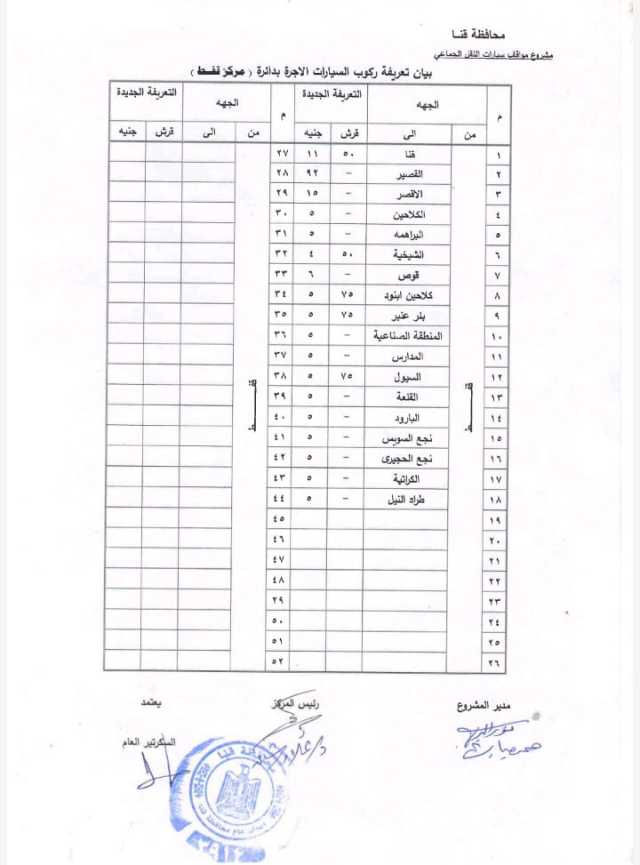 محافظة قنا
مشروع مواقف سيارات النقل الجماعي
بيان تعريفة ركوب السيارات الاجرة بدائرة ( مركز قفط )
م الجهه التعريفة الجديدة م الجهه التعريفة الجديدة
من الى قرش جنيه من الى قرش جنيه
١ قنا ٥٠ ١١ ٢٧
٢ القصير - ٩٢ ٢٨
٣ الاقصر - ١٥ ٢٩
٤ الكلاحين - ٥ ٣٠
٥ البراهمه - ٥ ٣١
٦ الشيخية ٥٠ ٤ ٣٢
٧ قوص - ٦ ٣٣
٨ كلاحين ابنود ٧٥ ٥ ٣٤
٩ بئر عنبر ٧٥ ٥ ٣٥
١٠ المنطقة الصناعية - ٥ ٣٦
١١ المدارس - ٥ ٣٧
١٢ قفط السيول ٧٥ ٥ ٣٨ قفط
١٣ القلعة - ٥ ٣٩
١٤ البارود - ٥ ٤٠
١٥ نجع السويس - ٥ ٤١
١٦ نجع الحجيرى - ٥ ٤٢
١٧ الكراتية - ٥ ٤٣
١٨ طراد النيل - ٥ ٤٤
١٩ ٤٥
٢٠ ٤٦
٢١ ٤٧
٢٢ ٤٨
٢٣ ٢٩
٢٤ ٥٠
٢٥ ٥١
٢٦ ٥٢
مدير المشروع رئيس المركز يعتمد
السكرتير العام
محافظة قنا